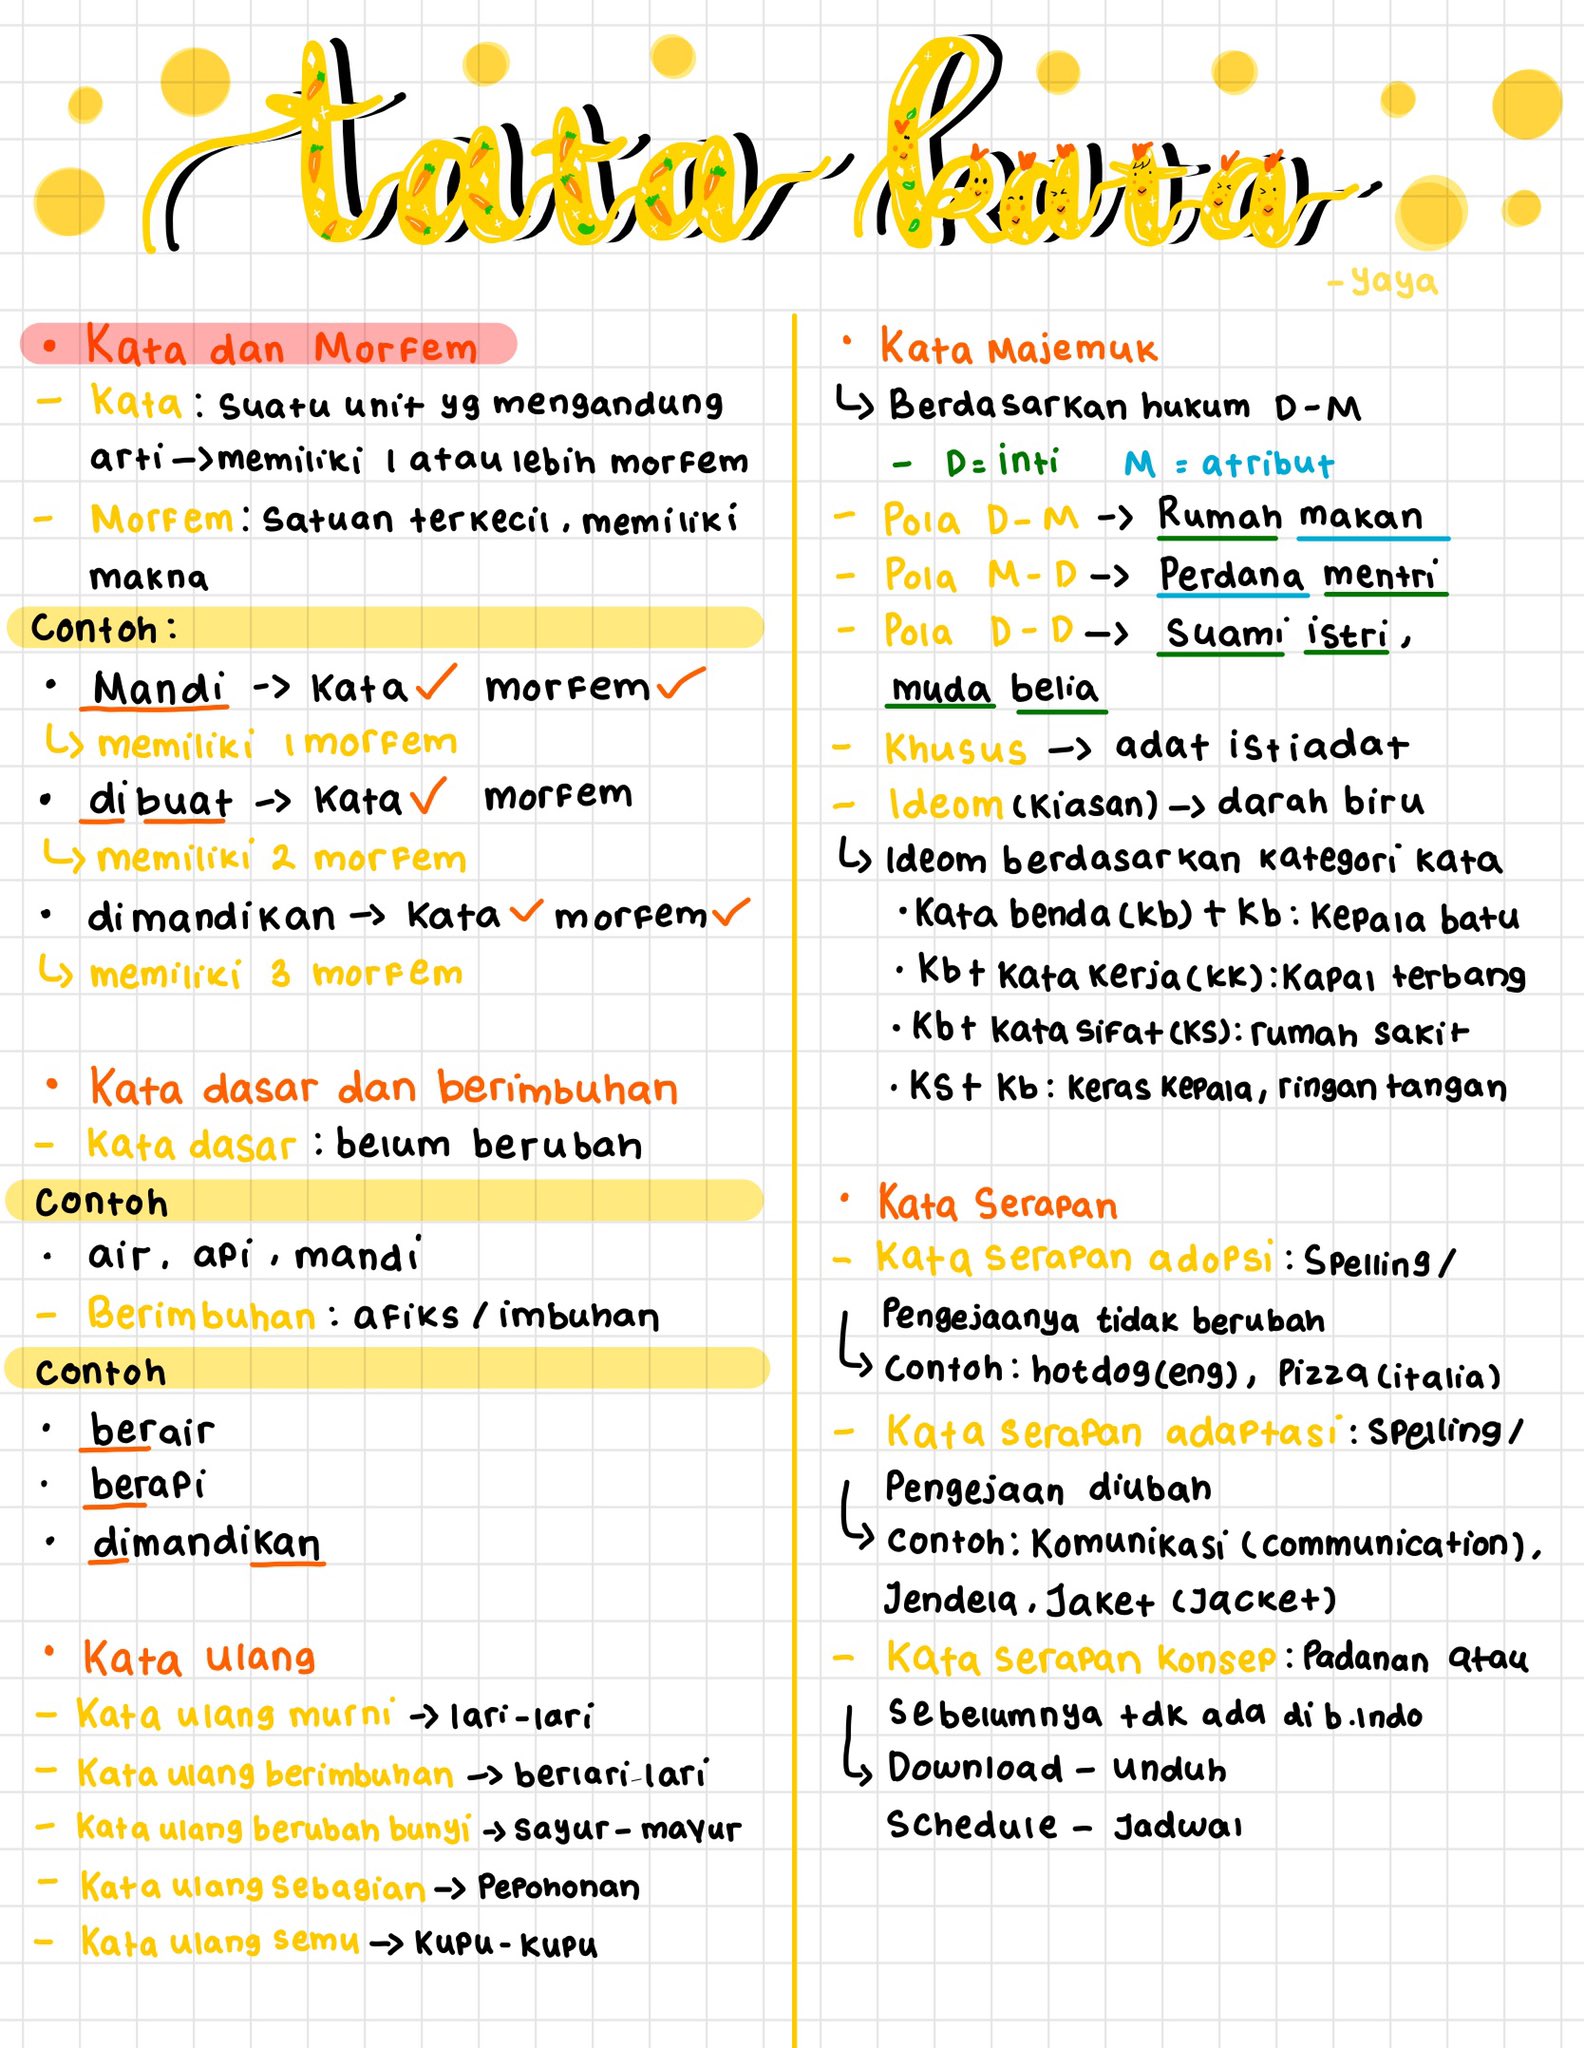 tata kata
- yaya
• Kata dan Morfem
- Kata : suatu unit yg mengandung
arti -> memiliki 1 atau lebih morfem
- Morfem : satuan terkecil, memiliki
makna
Contoh :
• Mandi -> Kata ✓ morfem ✓
↳ memiliki 1 morfem
• dibuat -> Kata ✓ morfem
↳ memiliki 2 morfem
• dimandikan -> Kata ✓ morfem ✓
↳ memiliki 3 morfem
• Kata dasar dan berimbuhan
- Kata dasar : belum berubah
Contoh
• air, api, mandi
- Berimbuhan : afiks / imbuhan
Contoh
• berair
• berapi
• dimandikan
• Kata ulang
- Kata ulang murni -> lari-lari
- Kata ulang berimbuhan -> berlari-lari
- Kata ulang berubah bunyi -> sayur-mayur
- Kata ulang sebagian -> Pepohonan
- Kata ulang semu -> Kupu-Kupu
• Kata Majemuk
↳ Berdasarkan hukum D-M
- D = inti M = atribut
- Pola D-M -> Rumah makan
- Pola M-D -> Perdana mentri
- Pola D-D -> Suami istri,
muda belia
- Khusus -> adat istiadat
- Ideom (Kiasan) -> darah biru
↳ Ideom berdasarkan kategori kata
• Kata benda (kb) + Kb : Kepala batu
• Kb + Kata Kerja (KK) : Kapal terbang
• Kb + Kata Sifat (KS) : rumah sakit
• KS + Kb : Keras Kepala, ringan tangan
• Kata Serapan
- Kata serapan adopsi : Spelling /
Pengejaanya tidak berubah
↳ Contoh : hotdog (eng), Pizza (italia)
- Kata serapan adaptasi : Spelling /
Pengejaan diubah
↳ Contoh : Komunikasi (communication),
Jendela, Jaket (Jacket)
- Kata serapan Konsep : Padanan atau
sebelumnya tdk ada di b.Indo
↳ Download - unduh
Schedule - Jadwal